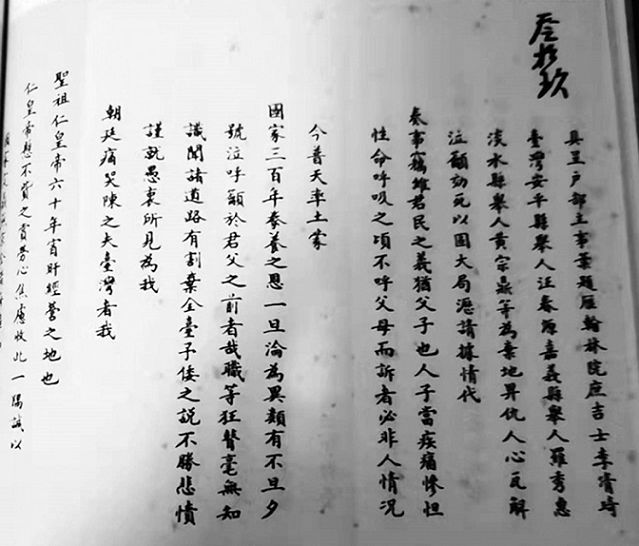 叁拾玖
具呈戶部主事葉題雁翰林院庶吉士李清琦
臺灣安平縣舉人汪春源嘉義縣舉人羅秀惠
淡水縣舉人黃宗鼎等為棄地畀仇人心瓦解
泣籲効死以固大局瀝請據情代
奏事竊維君民之義猶父子也人子當疾痛慘怛
性命呼吸之頃不呼父母而訴者必非人情況
今普天率土蒙
國家二百年豢養之恩一旦淪為異類有不旦夕
號泣呼籲於君父之前者哉職等狂瞽毫無知
識聞諸道路有割棄全臺予倭之說不勝悲憤
謹就愚衷所見為我
朝廷痛哭陳之夫臺灣者我
聖祖仁皇帝六十年宵旰經營之地也
仁皇帝懸不貲之賞勞心焦慮收此一隅誠以